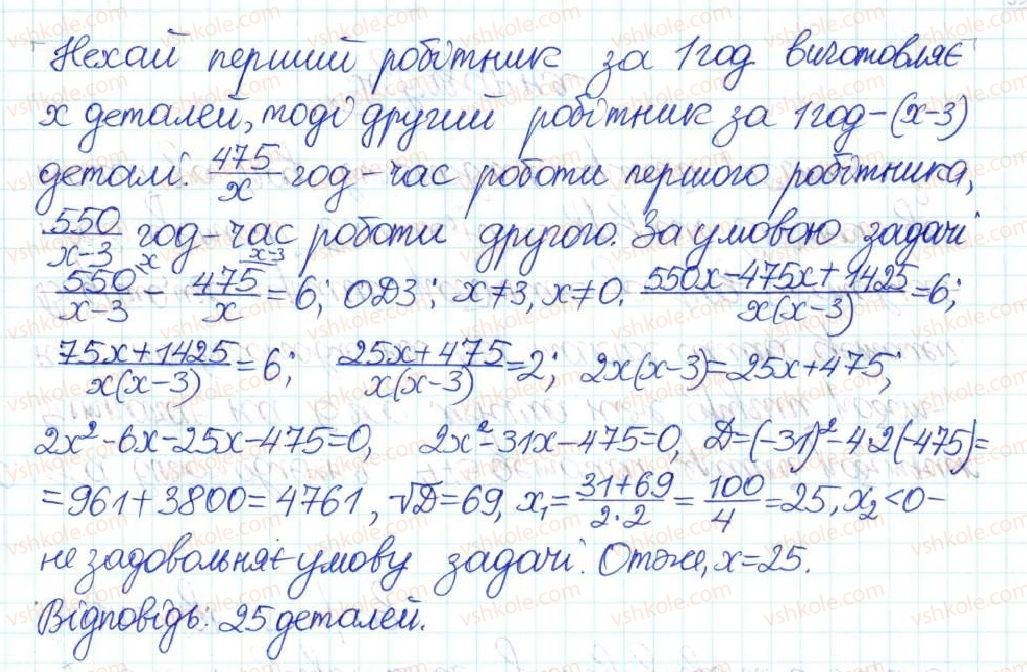 Нехай перший робітник за 1 год виготовляє
х деталей, тоді другий робітник за 1 год – (х-3)
деталі. 475/x год – час роботи першого робітника,
550/(x-3) год – час роботи другого. За умовою задачі
550/(x-3) - 475/x = 6; ОДЗ: x≠3, x≠0. (550x-475x+1425)/(x(x-3)) = 6;
(75x+1425)/(x(x-3)) = 6; (25x+475)/(x(x-3)) = 2; 2x(x-3)=25x+475;
2x²-6x-25x-475=0, 2x²-31x-475=0, D=(-31)²-4·2(-475)=
=961+3800=4761, √D=69, x₁=(31+69)/(2·2)=100/4=25, x₂<0 –
не задовольняє умову задачі. Отже, x=25.
Відповідь: 25 деталей.